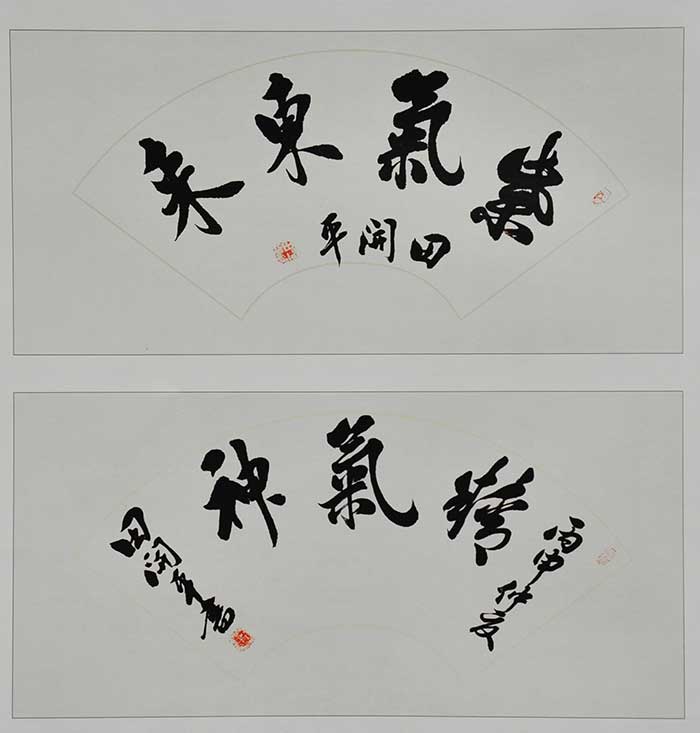 紫氣東来
田開平
丙申仲夏
精氣神
田開平書